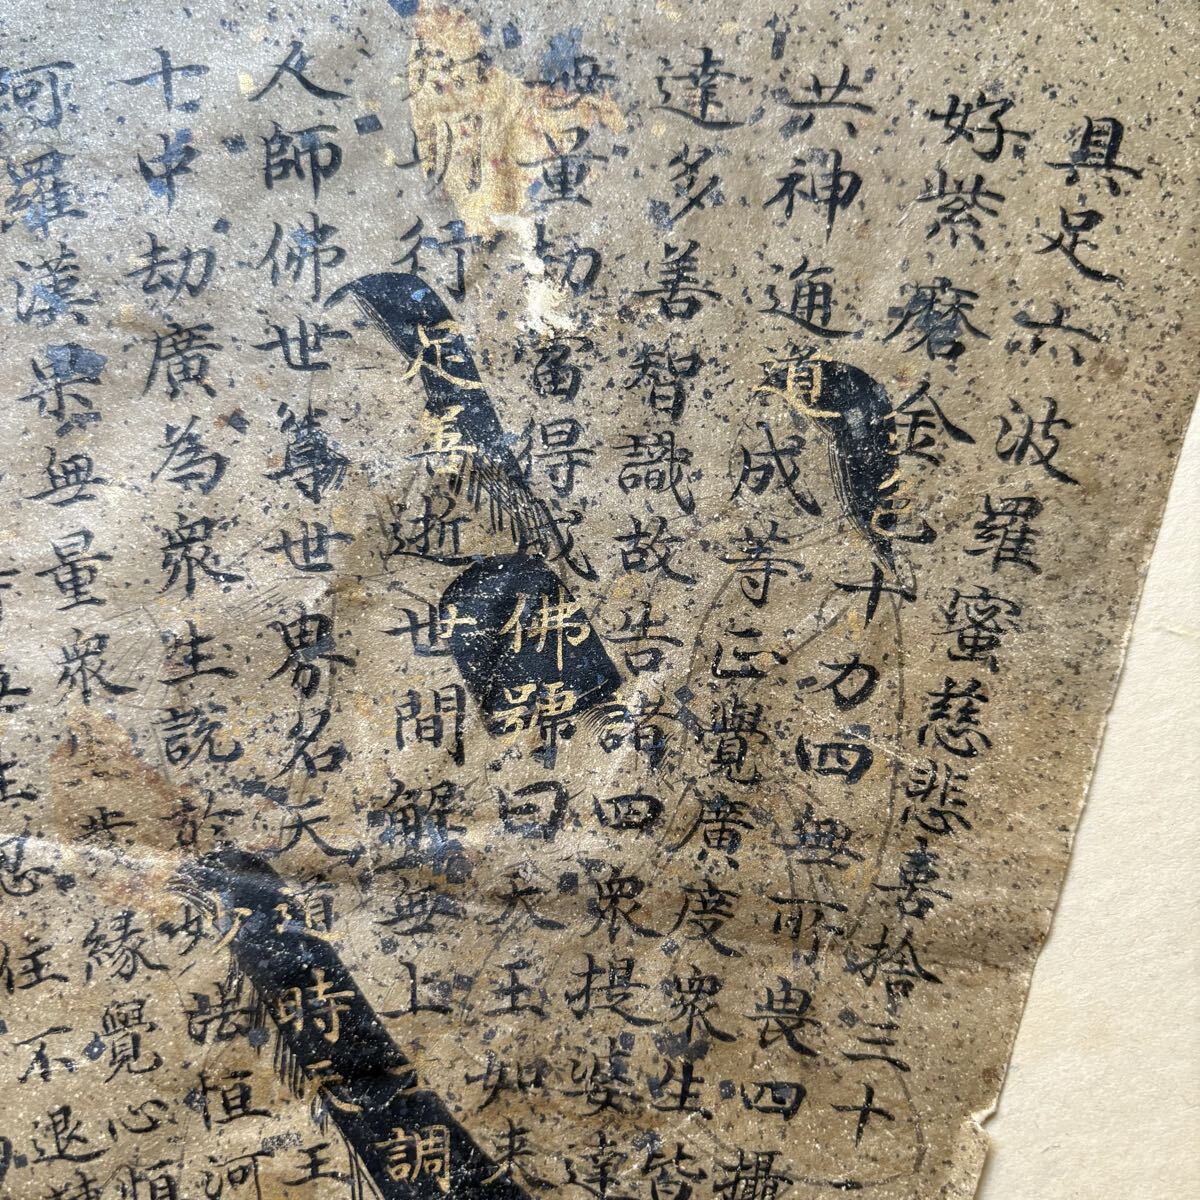 具足六波羅蜜慈悲喜捨三十
好紫磨金色十力四無所畏四攝
共神通道成等正覺廣度衆生皆
達多善智識故告諸四衆提婆達
無量劫當得成佛號曰天王如来
明行足善逝世間解無上士調
人師佛世尊世界名天道時天王
十中劫廣為衆生説於妙法恒河
阿羅漢果無量衆生發緣覺心恒
生忍住不退轉